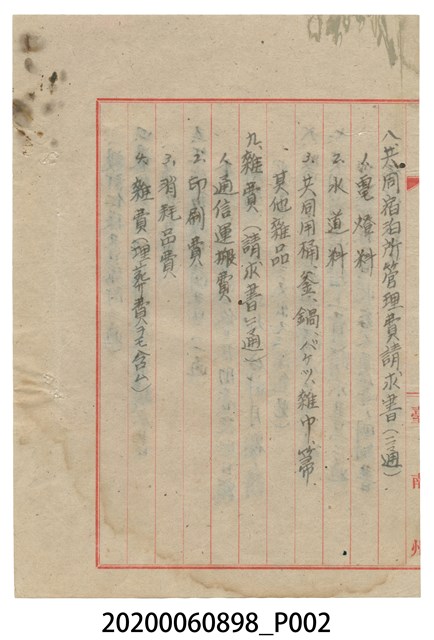 八、共同宿泊所管理費請求書(二通)
1、電燈料
2、水道料
3、共同用桶、釜、鍋、バケツ、雜巾、箒、
其他雜品
九、雜費(請求書二通)
1、通信運搬費
2、印刷費
3、消耗品費
4、雜費(埋葬費ヲモ含ム)
臺南州
20200060898_P002